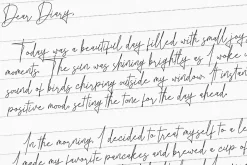 Dear Diary,
Today was a beautiful day filled with small joy
moments. The sun was shining brightly as I woke u
sound of birds chirping outside my window. It instan
positive mood, setting the tone for the day ahead.
In the morning, I decided to treat myself to a le
I made my favorite pancakes and brewed a cup o